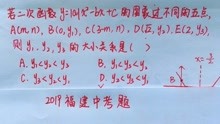 若二次函数 y=|a|x²-bx+c 的图象过不同的五点,
A(m,n), B(0,y₁), C(3-m,n), D(√2,y₂), E(2,y₃),
则 y₁、y₂、y₃ 的大小关系是( )
A. y₁<y₂<y₃ B. y₁<y₃<y₂
C. y₃<y₂<y₁ D. y₂<y₃<y₁
2019 福建中考题
B